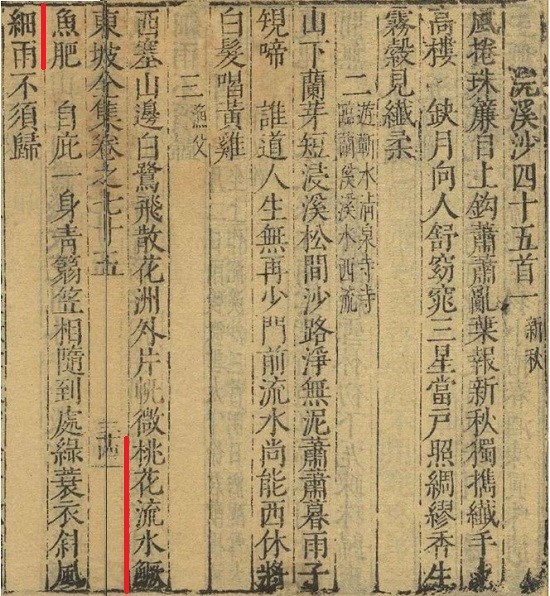 浣溪沙四十五首一 新秋
風捲珠簾自上鈎蕭蕭亂葉報新秋獨擕纖手上
高樓 鈌月向人舒窈窕三星當戶照綢繆香生
霧縠見纖柔
二 遊蘄水清泉寺寺
臨蘭溪溪水西流
山下蘭芽短浸溪松間沙路淨無泥蕭蕭暮雨子
規啼 誰道人生無再少門前流水尚能西休將
白髮唱黃雞
三 漁父
西塞山邊白鷺飛散花洲外片帆微桃花流水鱖
東坡全集卷之七十五
魚肥 自庇一身青篛笠相隨到處綠蓑衣斜風
細雨不須歸